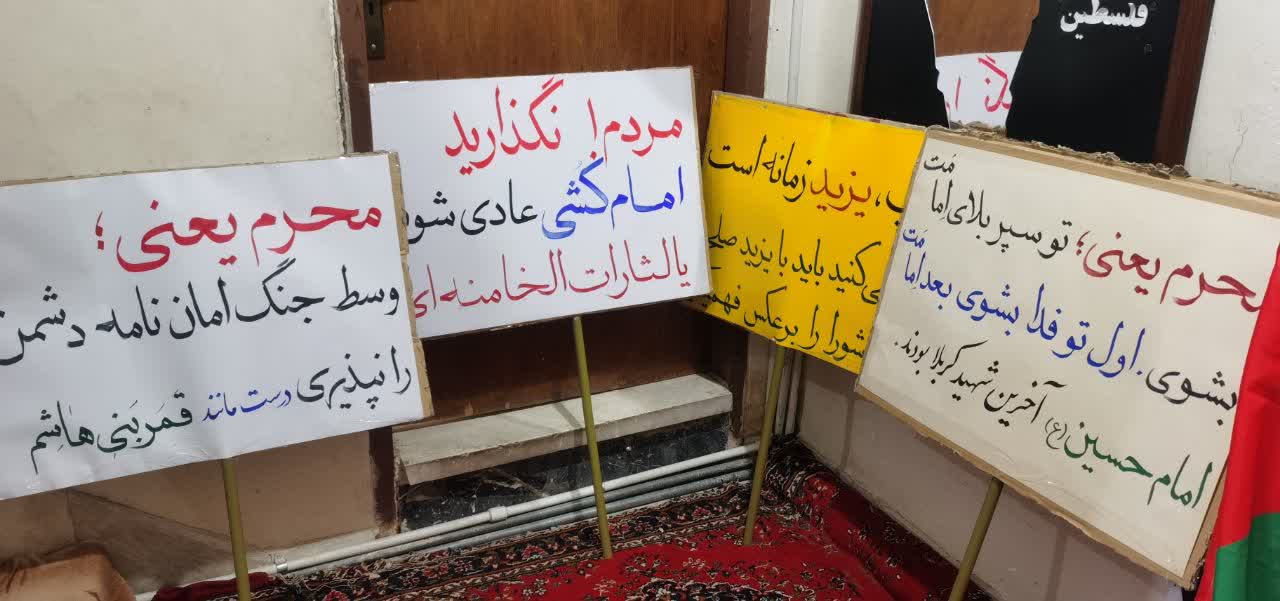 محرم یعنی؛
وسط جنگ امان نامه دشمن
را نپذیری درست مانند قمر بنی هاشم
مردم! نگذارید
امام کُشی عادی شود
یالثارات الخامنه ای
یزید زمانه است
کنید باید با یزید صلح
شورا را برعکس
محرم یعنی؛ تو سپر بلای اِمامَت
بشوی. اول تو فدا بشوی بعد اِمامَت
امام حسین (ع) آخرین شهید کربلا بودند.
فلسطین